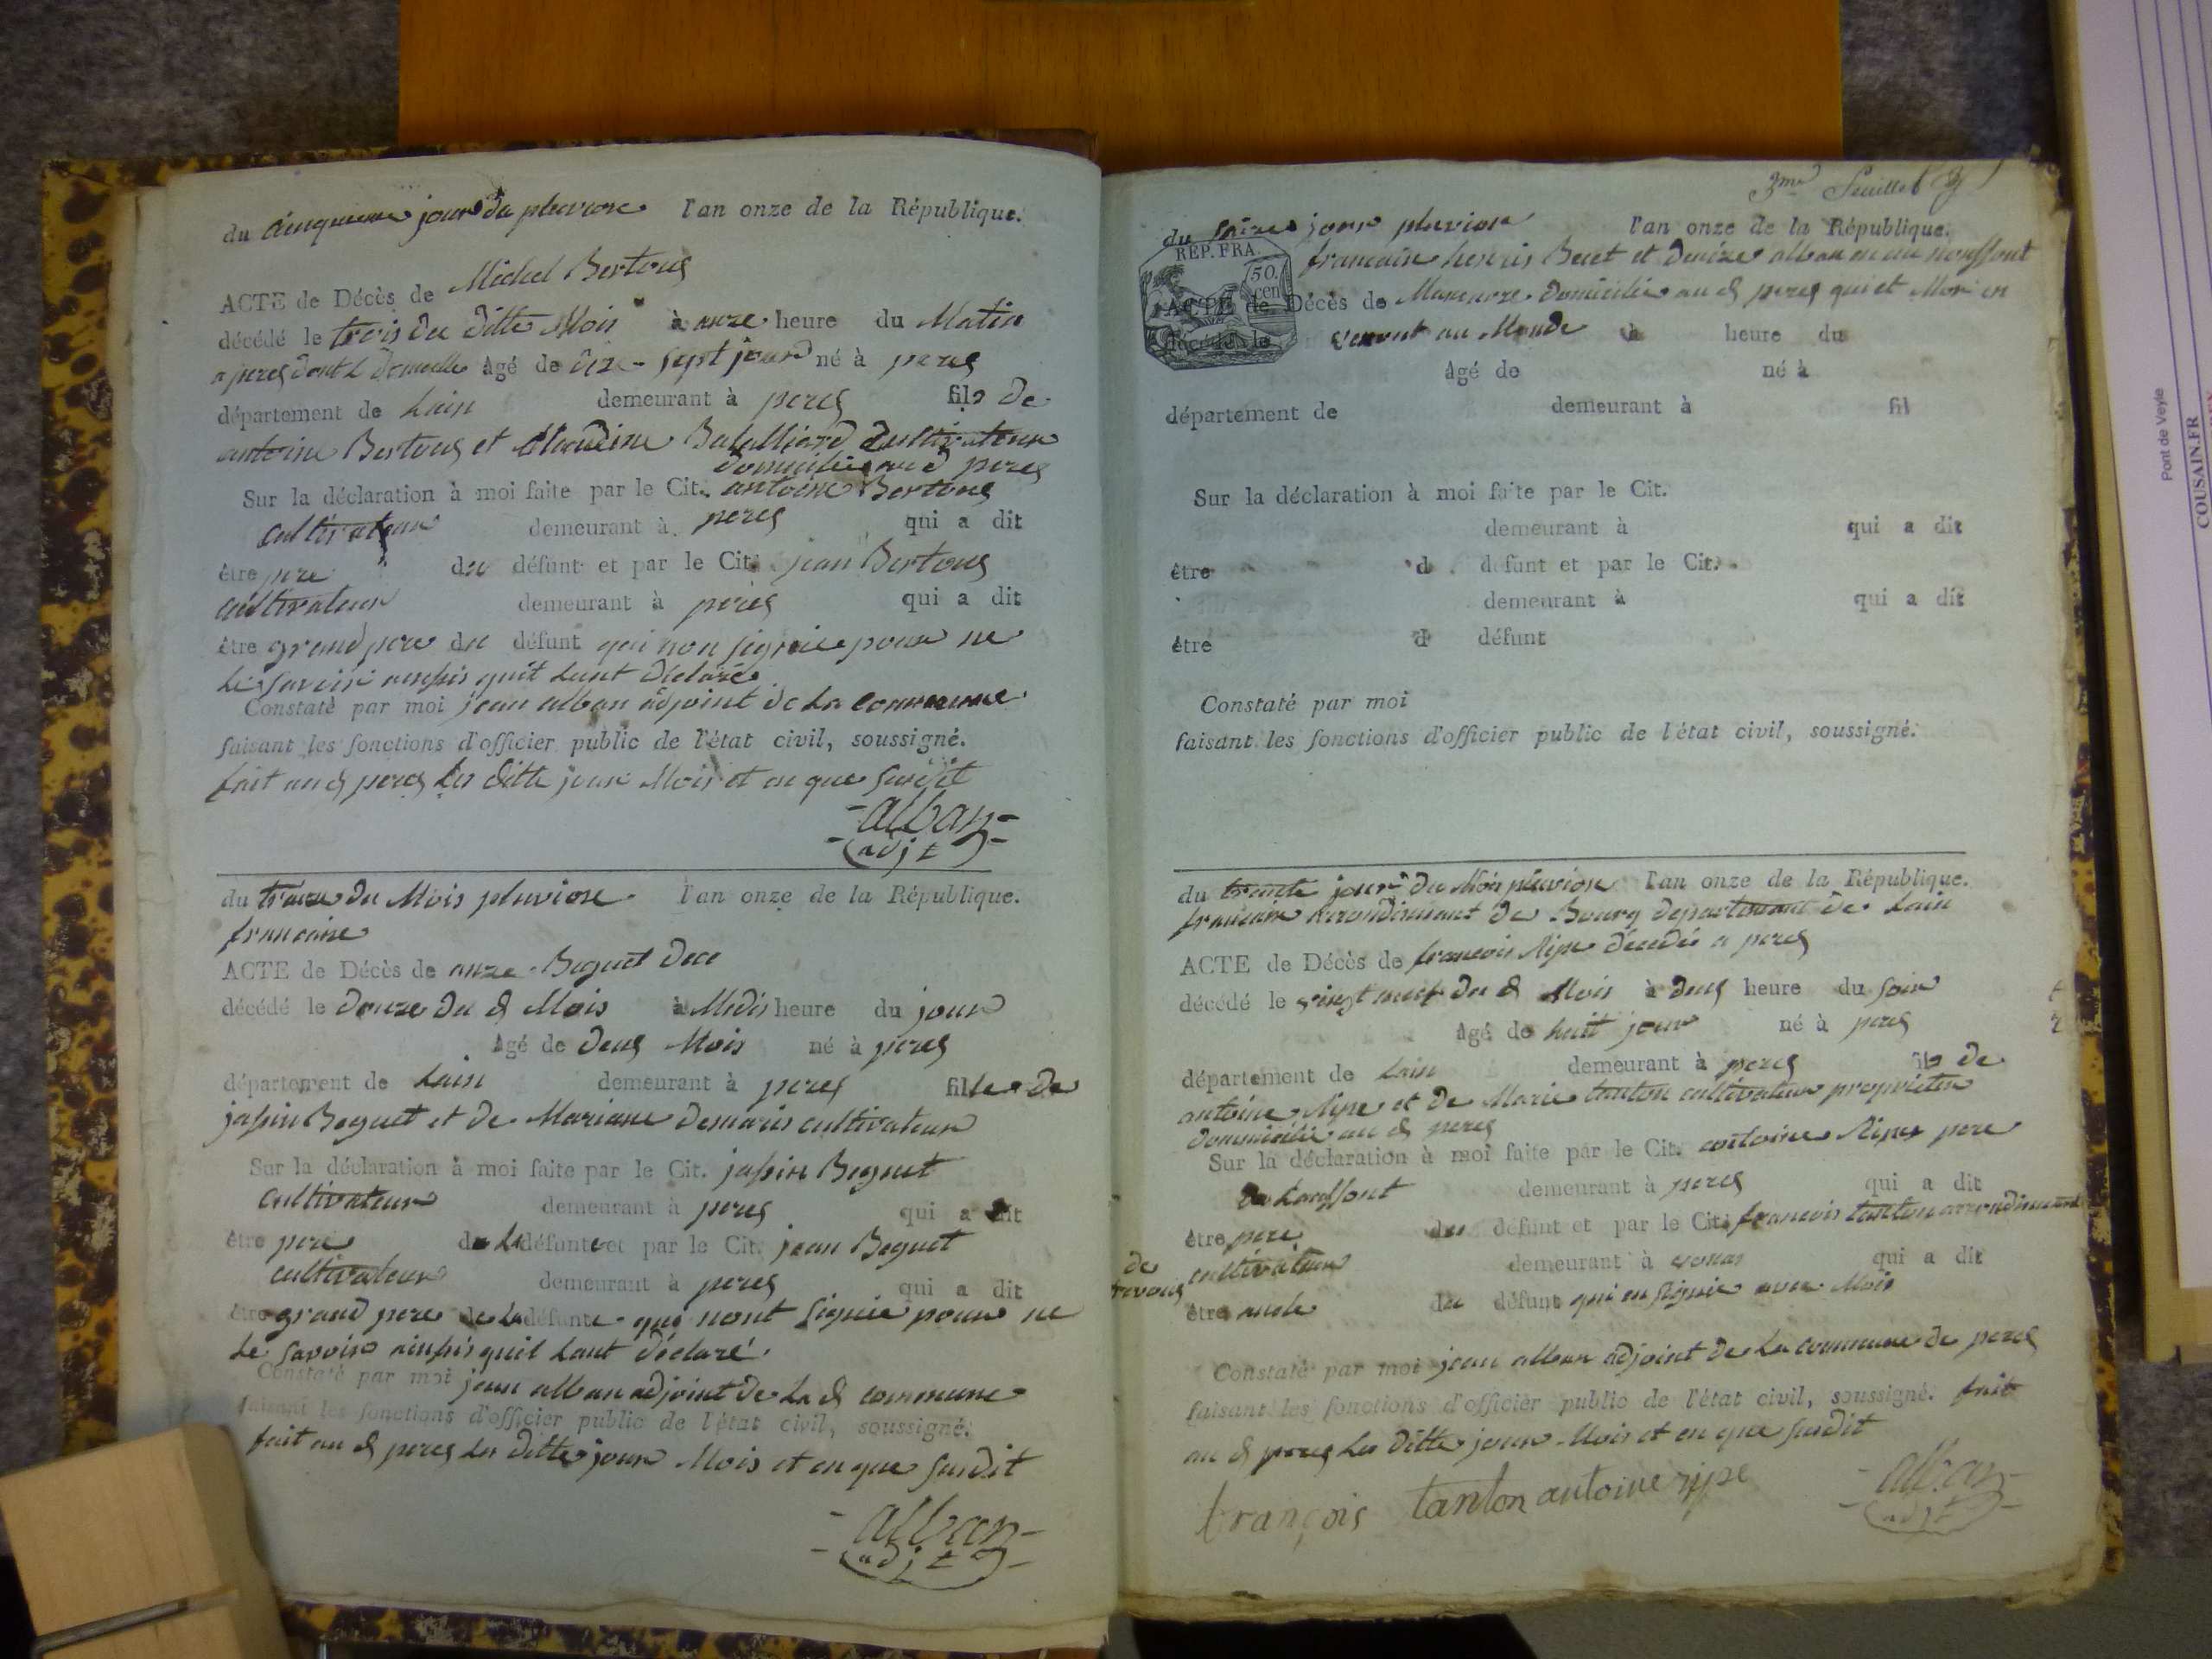 du cinquieme jour du pluviose l'an onze de la République.
ACTE de Décès de Michel Bertoug
décédé le trois du ditte Mois à onze heure du Matin
a pereg dont L domeelle âgé de dix-sept jour né à pereg
département de Lain demeurant à pereg fils de
antoine Bertoug et Claudine Batalliard Cultivateur
domicilie au d pereg
Sur la déclaration à moi faite par le Cit. antoine Bertoug
cultivateur demeurant à pereg qui a dit
être pere du défunt et par le Cit. jean Bertoug
cultivateur demeurant à pereg qui a dit
être grand pere du défunt qui non signie pour ne
Le savoir ainsis quil Lant déclaré
Constaté par moi jean alban adjoint de La commune
faisant les fonctions d'officier public de l'état civil, soussigné.
fait au d pereg Les ditte jour Mois et en que surdit
alban
adjt
du treize du Mois pluviose l'an onze de la République.
francaise
ACTE de Décès de Beguet
décédé le douze du d Mois à Midis heure du jour
âgé de deug Mois né à pereg
département de Lain demeurant à pereg fille de
japin Beguet et de Mariane demaris cultivateur
Sur la déclaration à moi faite par le Cit. japin Beguet
cultivateur demeurant à pereg qui a dit
être pere de La défunte et par le Cit. jean Beguet
cultivateur demeurant à pereg qui a dit
être grand pere de La défunte qui nont signie pour ne
Le savoir ainsis quil Lant déclaré.
Constaté par moi jean alban adjoint de La d commune
faisant les fonctions d'officier public de l'état civil, soussigné.
fait au d pereg Les ditte jour Mois et en que surdit
alban
adjt
3me feuillet
du saize jour pluviose l'an onze de la République.
REP. FRA.
50. cen
francaise henris Beret et denize alban
ACTE de Décès de domicilie au d pereg qui et Mor en
décédé le venent au Monde à heure du
âgé de né à
département de demeurant à fil
Sur la déclaration à moi faite par le Cit.
demeurant à qui a dit
être d défunt et par le Cit.
demeurant à qui a dit
être d défunt
Constaté par moi
faisant les fonctions d'officier public de l'état civil, soussigné.
du trante jour du Mois pluviose l'an onze de la République.
francaise arrondiment de Bourg departemant de Lain
ACTE de Décès de francois Ripe décedé a pereg
décédé le vingt neuf du d Mois à deug heure du soir
âgé de huit jour né à pereg
département de Lain demeurant à pereg fils de
antoine Ripe et de Marie tanton cultivateur proprieter
dommicilie au d pereg
Sur la déclaration à moi faite par le Cit. antoine Ripe pere
de Lanffont demeurant à pereg qui a dit
être pere du défunt et par le Cit. francois tanton arrondiment
de trevoug
cultivateur demeurant à vonas qui a dit
être oncle du défunt qui en signie avec Mois
Constaté par moi jean alban adjoint de La commune de pereg
faisant les fonctions d'officier public de l'état civil, soussigné. fait
au d pereg Les ditte jour Mois et en que surdit
françois tanton antoine ripe
alban
adjt
Pont de Veyle
COUSAIN.FR